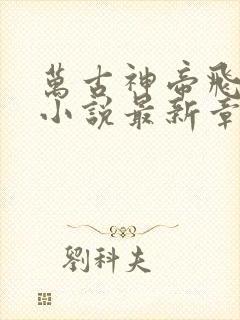 萬古神帝飛
小說最新章
劉科夫